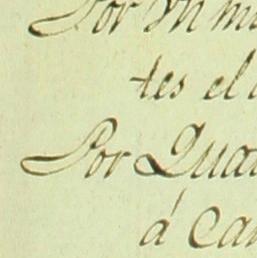 Por Un mi
tes el
Por Qua
á Ca